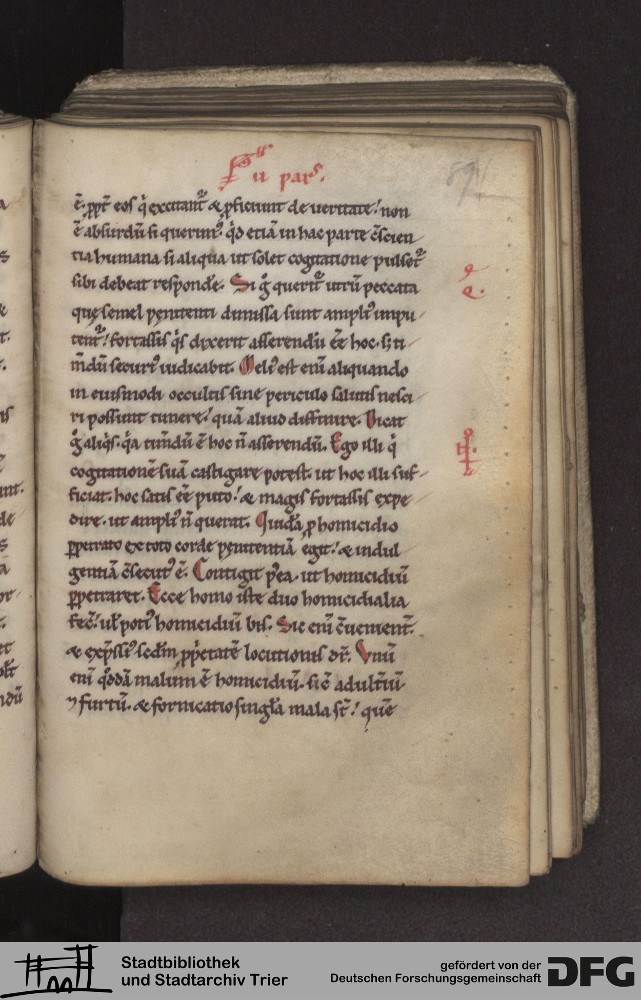 ii pars.
ē. ꝓpt̄ eos q̇ excitant᷑ & ꝓficiunt de ueritate! non
ē absurdū si querim᷒. qd̓ etiā in hac parte c̄scien
tia humana si aliqua ut solet cogitatione pulset᷑
sibi debeat responde. Si g̊ querit᷑ utrū peccata
que semel penitenti dimissa sunt ampli᷒ impu
tent᷑! fortassis q̇s dixerit asserendū eē hoc. s; ti
m̄dū securi᷒ iudicabit. Meli᷒ est enī aliquando
in eiusmodi occultis sine periculo salutis nesci
ri possunt timere! quā aliud diffinire. Dicat
g̊ aliq̇s. q̇a tim̄dū ē hoc n̄ asserendū. Ego illi q̇
cogitationē suā castigare potest. ut hoc illi suf
ficiat. hoc satis eē puto! & magis fortassis expe
dire. ut ampli᷒ n̄ querat. Quidā ꝓ homicidio
ꝑpetrato ex toto corde penitentiā egit! & indul
gentiā c̄secut᷒ ē. Contigit p̄ea. ut homicidiū
ꝑpetraret. Ecce homo iste duo homicidalia
fec̄! ul̄ poti᷒ homicidiū bis. Sic enī c̄uenient᷒.
& exp̄ssi᷒ scd̄m ꝓp̄etatē locutionis dr̄. Vnū
enī qd̓dā malum ē homicidiū. sic̄ adult̄iū
⁊ furtū. & fornicatio singl̄a mala st̄! quē
89
Stadtbibliothek
und Stadtarchiv Trier
gefördert von der
Deutschen Forschungsgemeinschaft
DFG